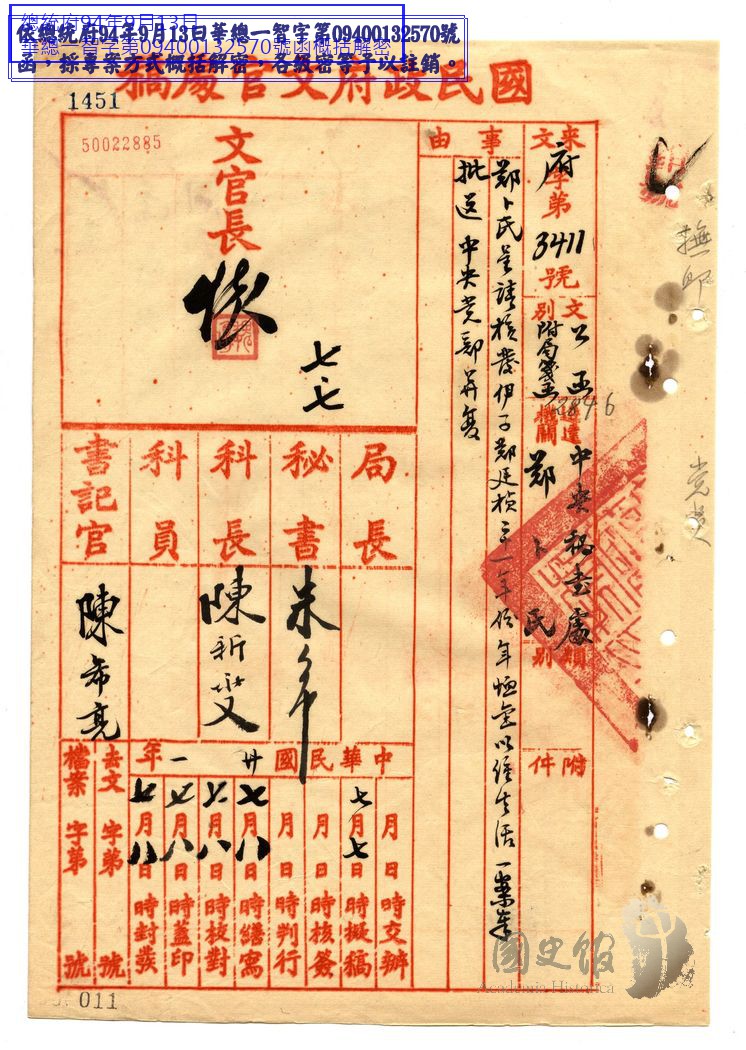 總統府94年9月13日
華總一智字第09400132570號函概括解密
依總統府94年9月13日華總一智字第09400132570號
函,採專案方式概括解密,各級密等予以註銷。
國民政府文官處稿
1451
50022885
來文 府字第3411號
文別 公函 附局箋函
送達機關 中央秘書處 鄭卜氏
3846
類別
附件
事由
鄭卜氏呈請核發伊子鄭廷楨三一年份年恤金以維生活一案奉
批送中央党部并复
撫卹
党史
文官長
七七
局長
秘書 朱
科長 陳新燮
科員
書記官 陳希亮
中華民國卅一年
月 日 時交辦
七月七日 時擬稿
月 日 時核簽
月 日 時判行
七月八日 時繕寫
七月八日 時校對
七月八日 時蓋印
七月八日 時封發
去文 字第 號
檔案 字第 號
011
國史館
Academia Historica